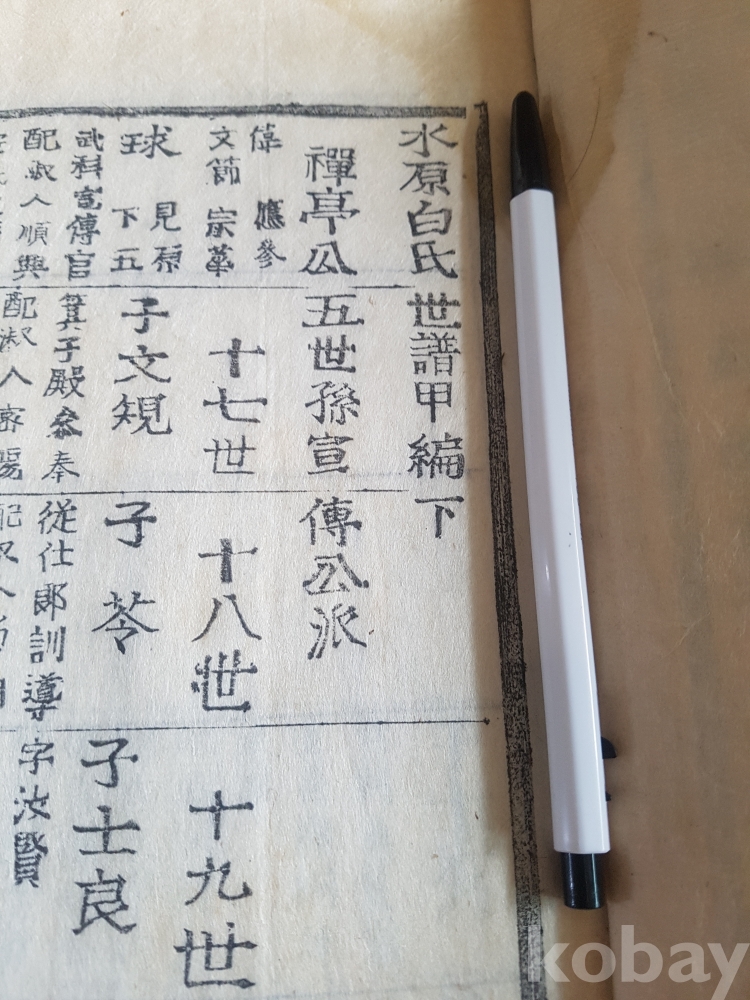 水原白氏世譜甲編下
禪亭公五世孫宣傳公派
偉 應參
文節 宗華
十七世
十八世
十九世
球 見原下五
子文規
子苓
子士良
武科宣傳官
箕子殿叅奉
從仕郎訓導
字汝賢
配淑人順興
配淑人
kobay